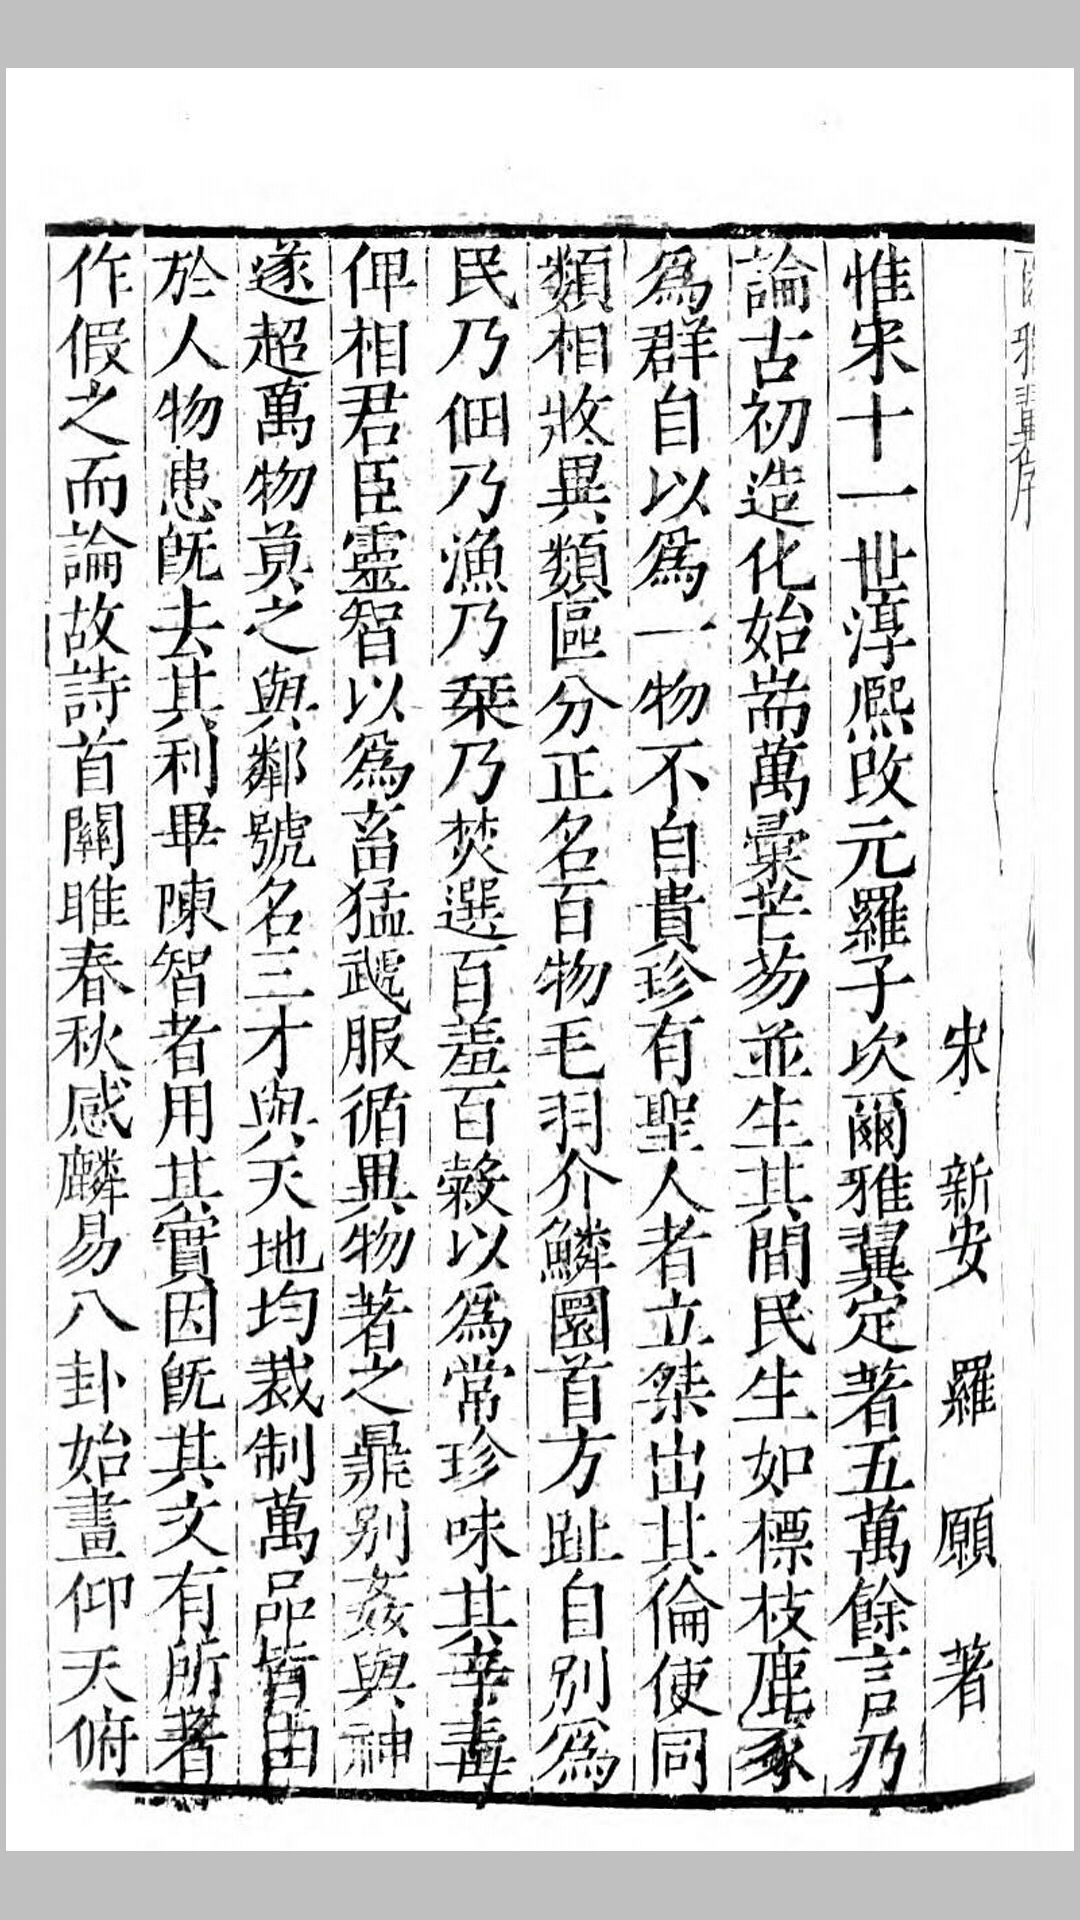 爾雅翼序
宋新安羅願著
惟宋十一世淳熈改元羅子次爾雅翼定著五萬餘言乃
論古初造化始耑萬彙芒芴並生其間民生如標枝鹿豕
爲群自以爲一物不自貴珍有聖人者立桀出其倫使同
類相收異類區分正名百物毛羽介鱗圎首方趾自別爲
民乃佃乃漁乃栞乃焚選百羞百糓以爲常珍味其辛毒
俾相君臣靈智以爲畜猛虣服循異物著之鼎别姦與神
遂超萬物莫之與鄰號名三才與天地均裁制萬品皆由
於人物患旣去其利畢陳智者用其實因旣其文有所著
作假之而論故詩首關雎春秋感麟易八卦始畫仰天俯